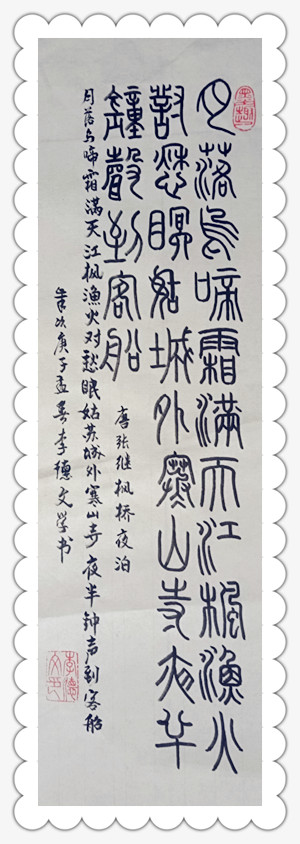 月落烏啼霜滿天江楓漁火
對愁眠姑城外寒山寺夜半
鐘聲到客船
唐张继枫桥夜泊
月落乌啼霜满天江枫渔火对愁眠姑苏城外寒山寺夜半钟声到客船
岁次庚子孟春李德文学书
李德文印